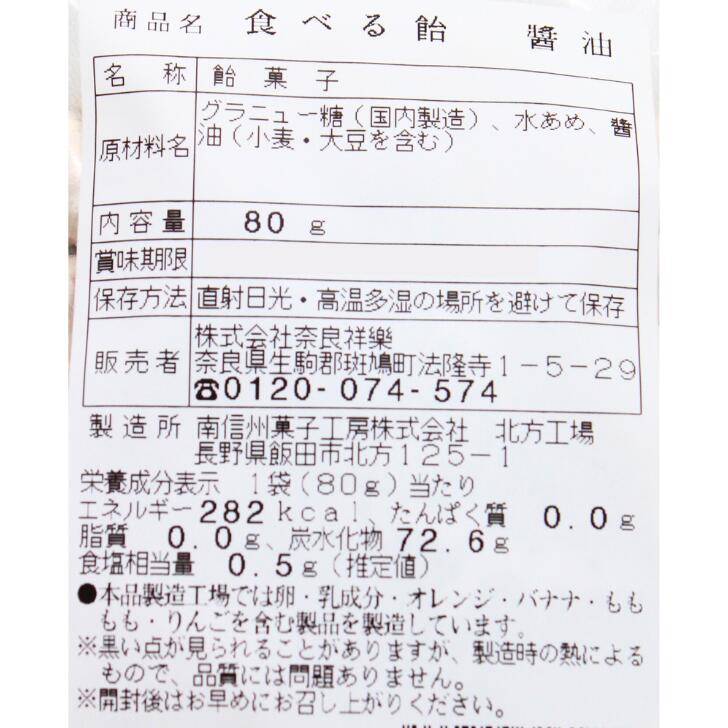 商品名 食べる飴 醬油
名称 飴菓子
原材料名 グラニュー糖（国内製造）、水あめ、醬
油（小麦・大豆を含む）
内容量 80 g
賞味期限
保存方法 直射日光・高温多湿の場所を避けて保存
販売者 株式会社奈良祥樂
奈良県生駒郡斑鳩町法隆寺１－５－２９
☎0120-074-574
製造所 南信州菓子工房株式会社 北方工場
長野県飯田市北方１２５－１
栄養成分表示 １袋（８０ｇ）当たり
エネルギー282kcal、たんぱく質 0.0g
脂質 0.0g、炭水化物 72.6g
食塩相当量 0.5g（推定値）
●本品製造工場では卵・乳成分・オレンジ・バナナ・もも
もも・りんごを含む製品を製造しています。
※黒い点が見られることがありますが、製造時の熱による
もので、品質には問題ありません。
※開封後はお早めにお召し上がりください。